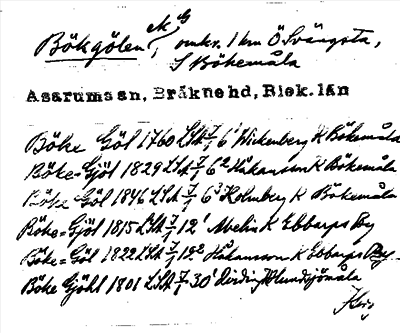 Bökgölen, omkr. 1 km Ö Svängsta,
S Bökemåla
Asarums sn, Bräkne hd, Blek. län
Böke Göl 1760 LSA 7/1 6¹ Wickenberg K Bökemåla
Böke=Gjöl 1829 LSA 7/1 6² Håkansson K Bökemåla
Böke Göl 1846 LSA 7/1 6³ Holmberg K Bökemåla
Böke=Gjöl 1815 LSA 7/1 12¹ Melin K Ebbarps By
Böke=Göl 1822 LSA 7/1 12² Håkansson K Ebbarps By
Böke Gjöhl 1801 LSA 7/1 30¹ K Lundsjömåla